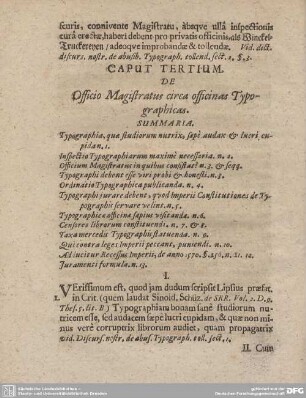 scuris, connivente Magistratu, absque ullâ inspectionis
curâ erectæ, haberi debent pro privatis officinis, als Winckel-
Truckereyen / adeoque improbandæ & tollendæ. Vid. dict.
discurs. nostr. de abusib. Typograph. tollend. sect. 2. §. 3.
CAPUT TERTIUM.
DE
Officio Magistratus circa officinas Typo-
graphicas.
SUMMARIA.
Typographia, quæ studiorum nutrix, sæpè audax & lucri cu-
pida n. 1.
Inspectio Typographiarum maximè necessaria. n. 2.
Officium Magistratus in quibus consistat? n. 3. & seqq.
Typographi debent esse viri probi & honesti. n. 3.
Ordinatio Typographica publicanda. n. 4.
Typographi jurare debent, quod Imperii Constitutiones de Ty-
pographiâ servare velint. n. 5.
Typographicæ officina sæpius visitanda. n. 6.
Censores librorum constituendi. n. 7. & 8.
Taxa mercedis Typographis statuenda. n. 9.
Qui contra leges Imperii peccant, puniendi. n. 10.
Adducitur Recessus Imperii, de anno 1570. §. 256. n. 11. 12.
Juramenti formula. n. 13.
I.
1. VErissimum est, quod jam dudum scripsit Lipsius præfat.
in Crit. (quem laudat Sinold. Schüz. de SRR. Vol. 2. D. 9.
Thes. 5. lit. B) Typographiam bonam sanè studiorum nu-
tricem esse, sed audacem sæpe lucri cupidam, & quæ non mi-
nus verè corruptrix librorum audiet, quam propagatrix
vid. Discurs. nostr. de abus. Typograph. toll. sect. 1.
II. Cum